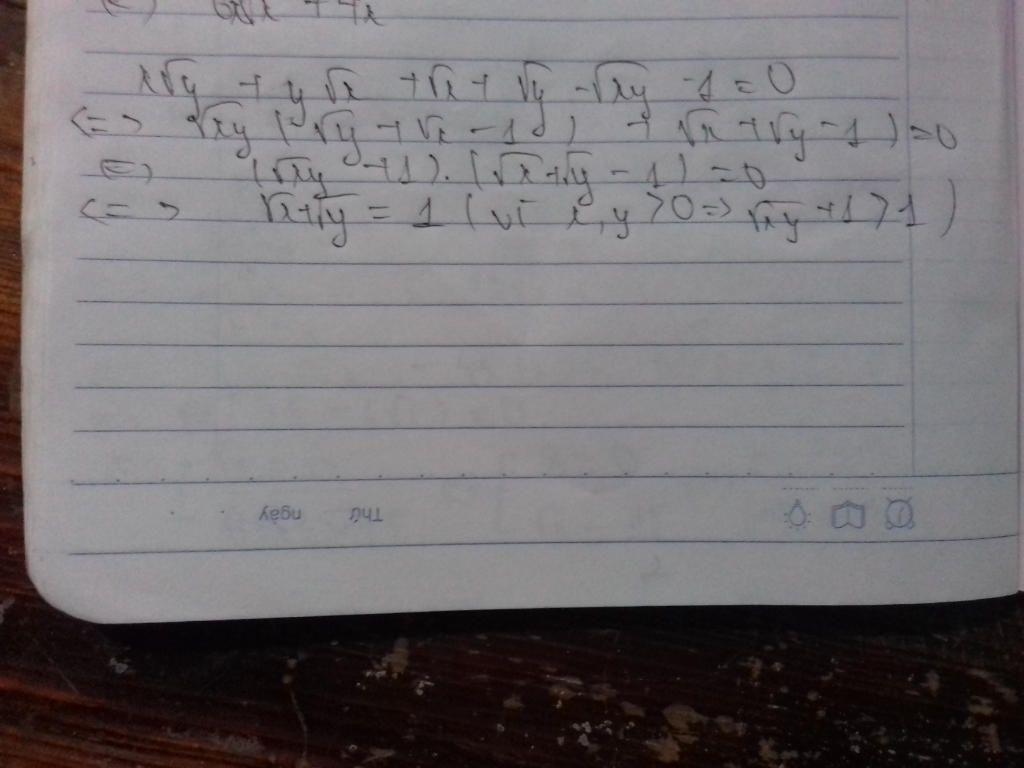 x√y + y√x + √x + √y - √xy - 1 = 0
<=> √xy (√y + √x - 1) + √x + √y - 1) = 0
<=> (√xy + 1).(√x + √y - 1) = 0
<=> √x + √y = 1 (vì x, y > 0 => √xy + 1 > 1)
Thứ ngày